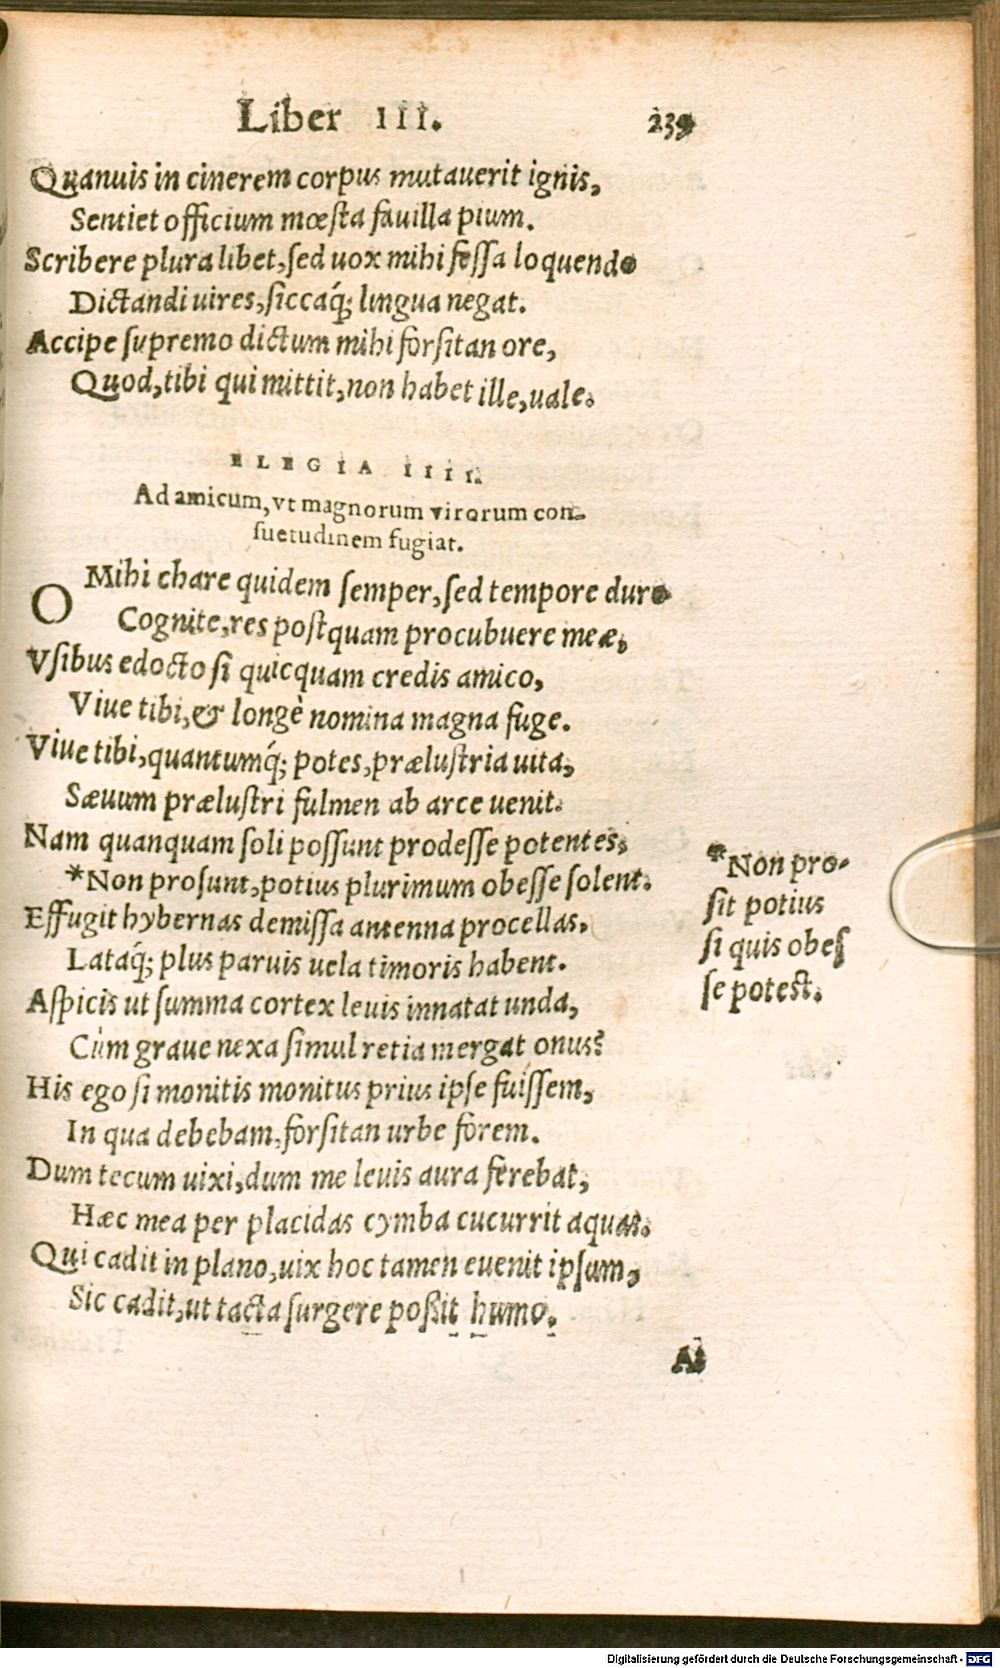 Liber III. 239
Quanuis in cinerem corpus mutauerit ignis,
Sentiet officium mœsta fauilla pium.
Scribere plura libet, sed uox mihi fessa loquendo
Dictandi uires, siccaq́; lingua negat.
Accipe supremo dictum mihi forsitan ore,
Quod, tibi qui mittit, non habet ille, uale.
ELEGIA IIII.
Ad amicum, vt magnorum virorum con-
suetudinem fugiat.
O Mihi chare quidem semper, sed tempore duro
Cognite, res postquam procubuere meæ,
Vsibus edocto si quicquam credis amico,
Viue tibi, & longè nomina magna fuge.
Viue tibi, quantumq́; potes, prælustria uita,
Sæuum prælustri fulmen ab arce uenit.
Nam quanquam soli possunt prodesse potentes,
*Non prosunt, potius plurimum obesse solent.
Effugit hybernas demissa antenna procellas,
Lataq́; plus paruis uela timoris habent.
Aspicis ut summa cortex leuis innatat unda,
Cùm graue nexa simul retia mergat onus?
His ego si monitis monitus prius ipse fuissem,
In qua debebam, forsitan urbe forem.
Dum tecum uixi, dum me leuis aura ferebat,
Hæc mea per placidas cymba cucurrit aquas.
Qui cadit in plano, uix hoc tamen euenit ipsum,
Sic cadit, ut tacta surgere possit humo.
*Non pro-
sit potius
si quis obes
se potest.
At
Digitalisierung gefördert durch die Deutsche Forschungsgemeinschaft - DFG